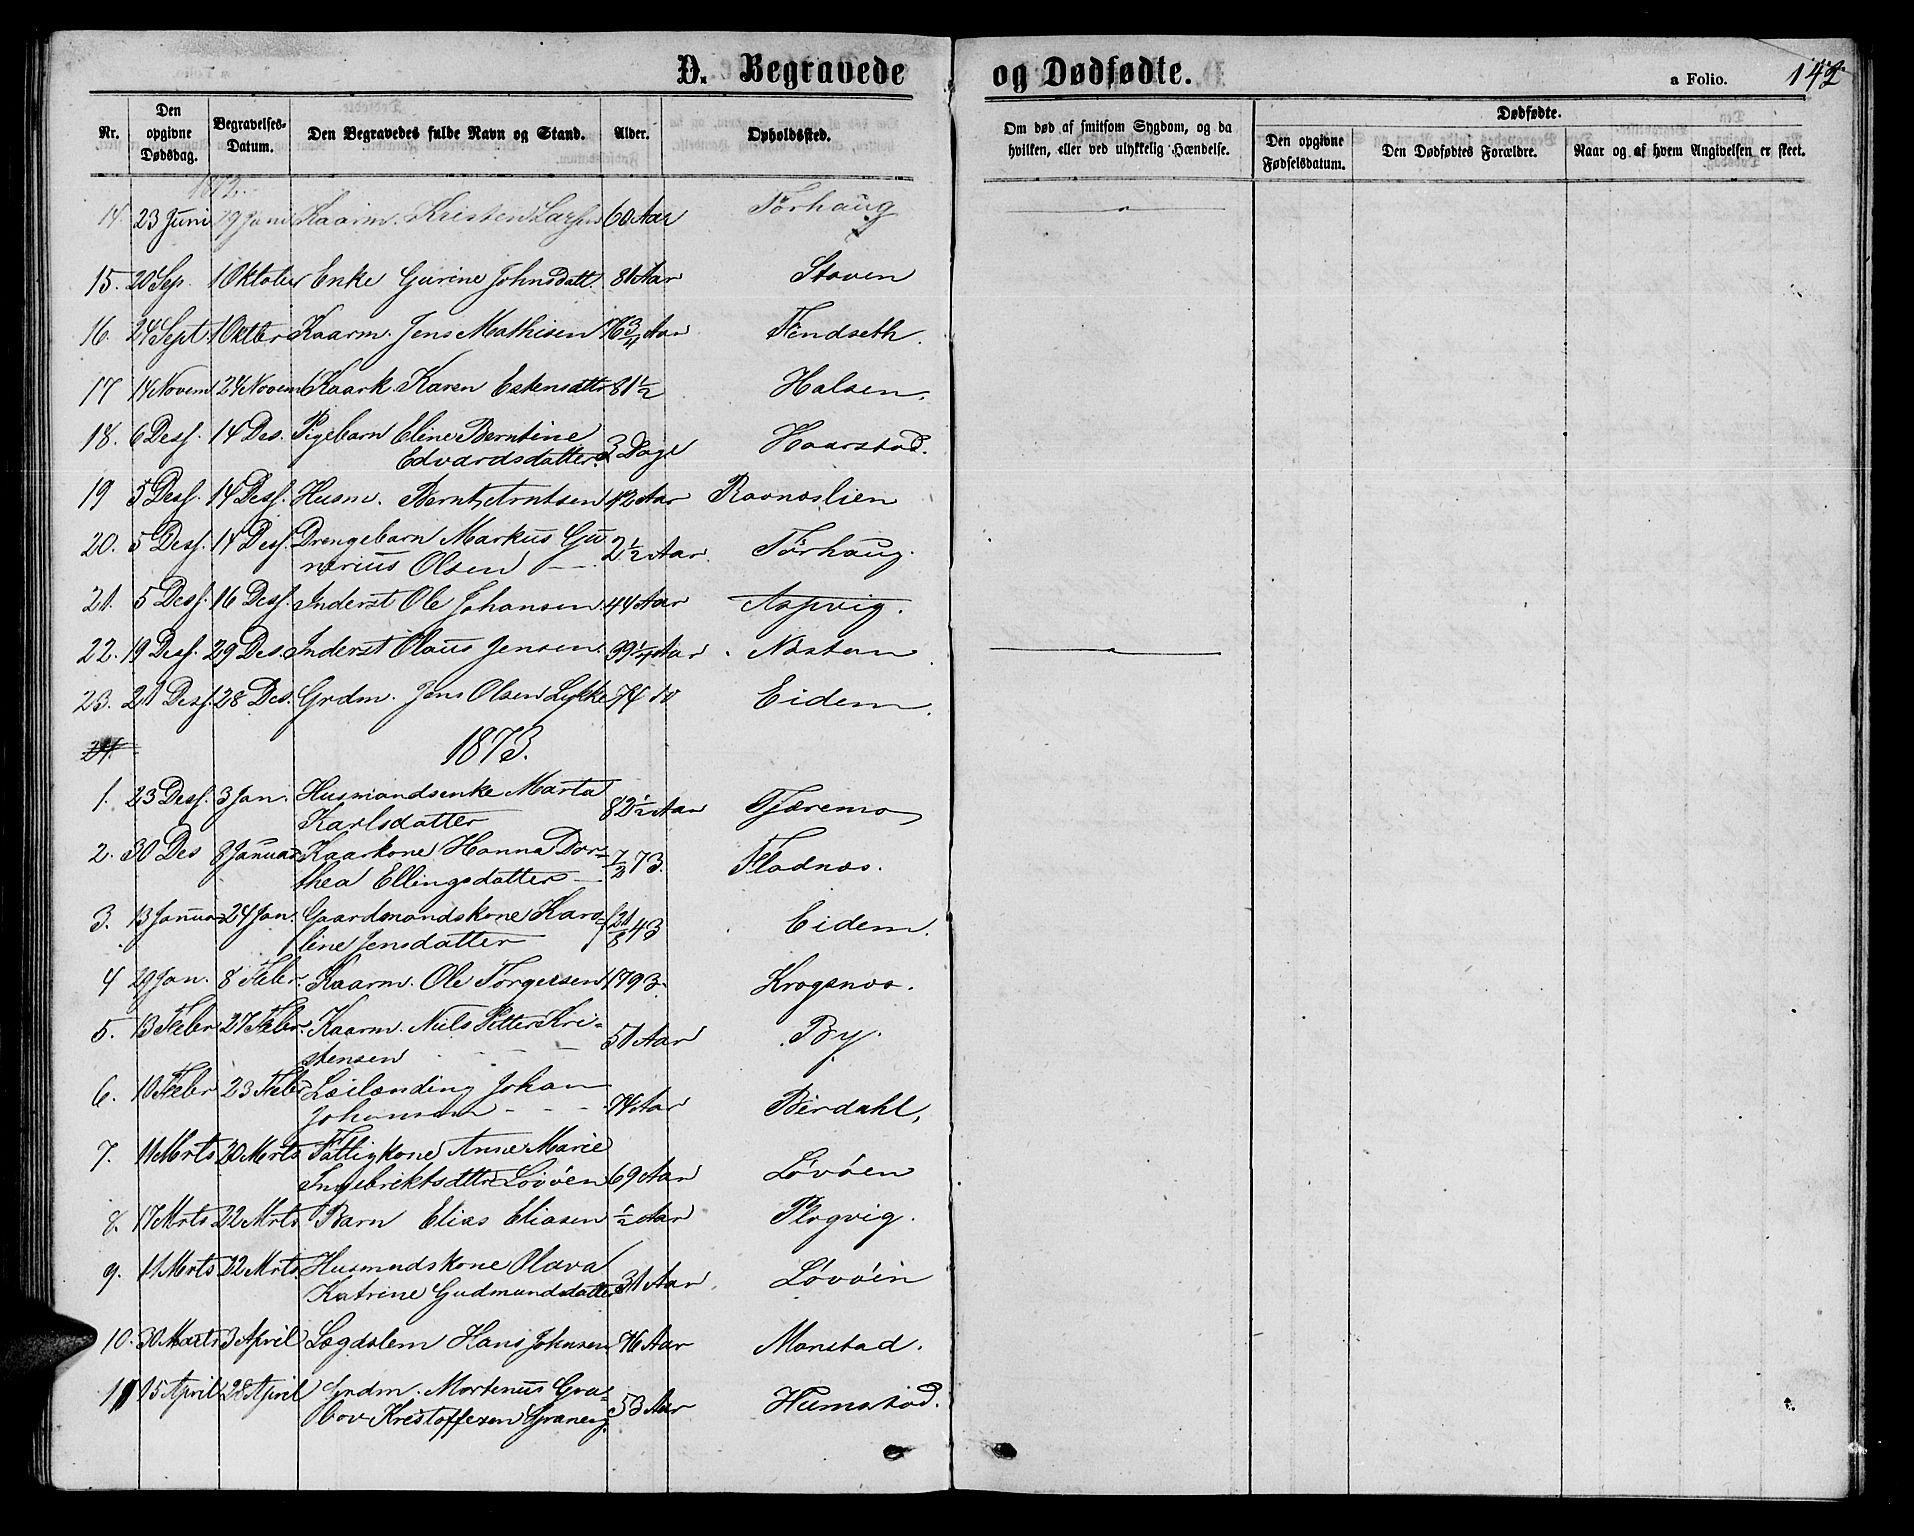 D. Begravede og Dødfødte.
a Folio. 142
Nr. Den opgivne Dødsdag. Begravelses-Datum. Den Begravedes fulde Navn og Stand. Alder. Opholdsted. Om død af smitsom Sygdom, og da hvilken, eller ved ulykkelig Hændelse. Dødfødte. Den opgivne Fødselsdatum. Den Dødfødtes Forældre. Naar og af hvem Angivelsen er skeet.
1872.
14. 23 Juni 29 Juni Kaarm. Kristen Larsen 60 Aar Tørhaug
15. 20 Sep. 1 Oktober Enke Gurine Johnsdatt. 81 Aar Staven
16. 24 Sept. 1 Oktber Kaarm. Jens Mathisen 76 3/4 Aar Fendseth.
17 14 Novem 24 Novem Kaark. Karen Estensdttr 81 1/2 Halsen.
18. 6 Desf. 14 Des. Pigebarn Eline Berntine
Edvardsdatter. 3 Dage Haarstad.
19 5 Desf. 14 Desf. Husm. Bernt Arntsen 42 Aar Ravnaslien
20. 5 Desf. 14 Desf. Drengebarn Markus Gu
nerius Olsen 2 1/2 Aar. Tørhaug.
21. 5 Desf. 16 Desf. Inderst Ole Johansen 44 Aar Aspvig.
22. 19 Desf. 29 Des. Inderst Olaus Jensen. 39 1/4 Aar Nøstan
23. 21 Desf. 28 Des. Grdm. Jens Olsen Lykke 74 Eidem.
24.
1873.
1. 23 Desf. 3 Jan. Husmandsenke Marta
Karlsdatter 82 1/2 Aar Tjæremo
2. 30 Des 8 Januar Kaarkone Hanna Dor-
thea Ellingsdatter 1/2 73. Fladnæs.
3. 13 Januar 24 Jan. Gaardmandskone Karo-
line Jensdatter 21/8 43 Eidem.
4 29 Jan. 8 Febr. Kaarm. Ole Torgersen 1793. Krogsnæs.
5. 13 Febr 27 Febr. Kaarm. Niels Petter Kri-
stensen 51 Aar By.
6. 10 Febr 23 Febr Leilænding Johan
Johansen 74 Aar Berdahl,
7. 11 Mrts 20 Mrts Fattigkone Anne Marie
Ingebriktsdttr Løvøen 69 Aar Løvøen
8. 17 Mrts 22 Mrts. Barn Elias Eliasen 1/2 Aar Plogvig.
9. 11 Mrts 22 Mrts. Husmndskone Olava
Katrine Gudmundsdatter 31 Aar. Løvøen
10. 30 Marts 3 April Lægdslem Hans Johnsen 76 Aar Monstad.
11 15 April 28 April Grdm. Mortenus Gra-
bov Kristoffersen Graneng. 53 Aar Humstad.